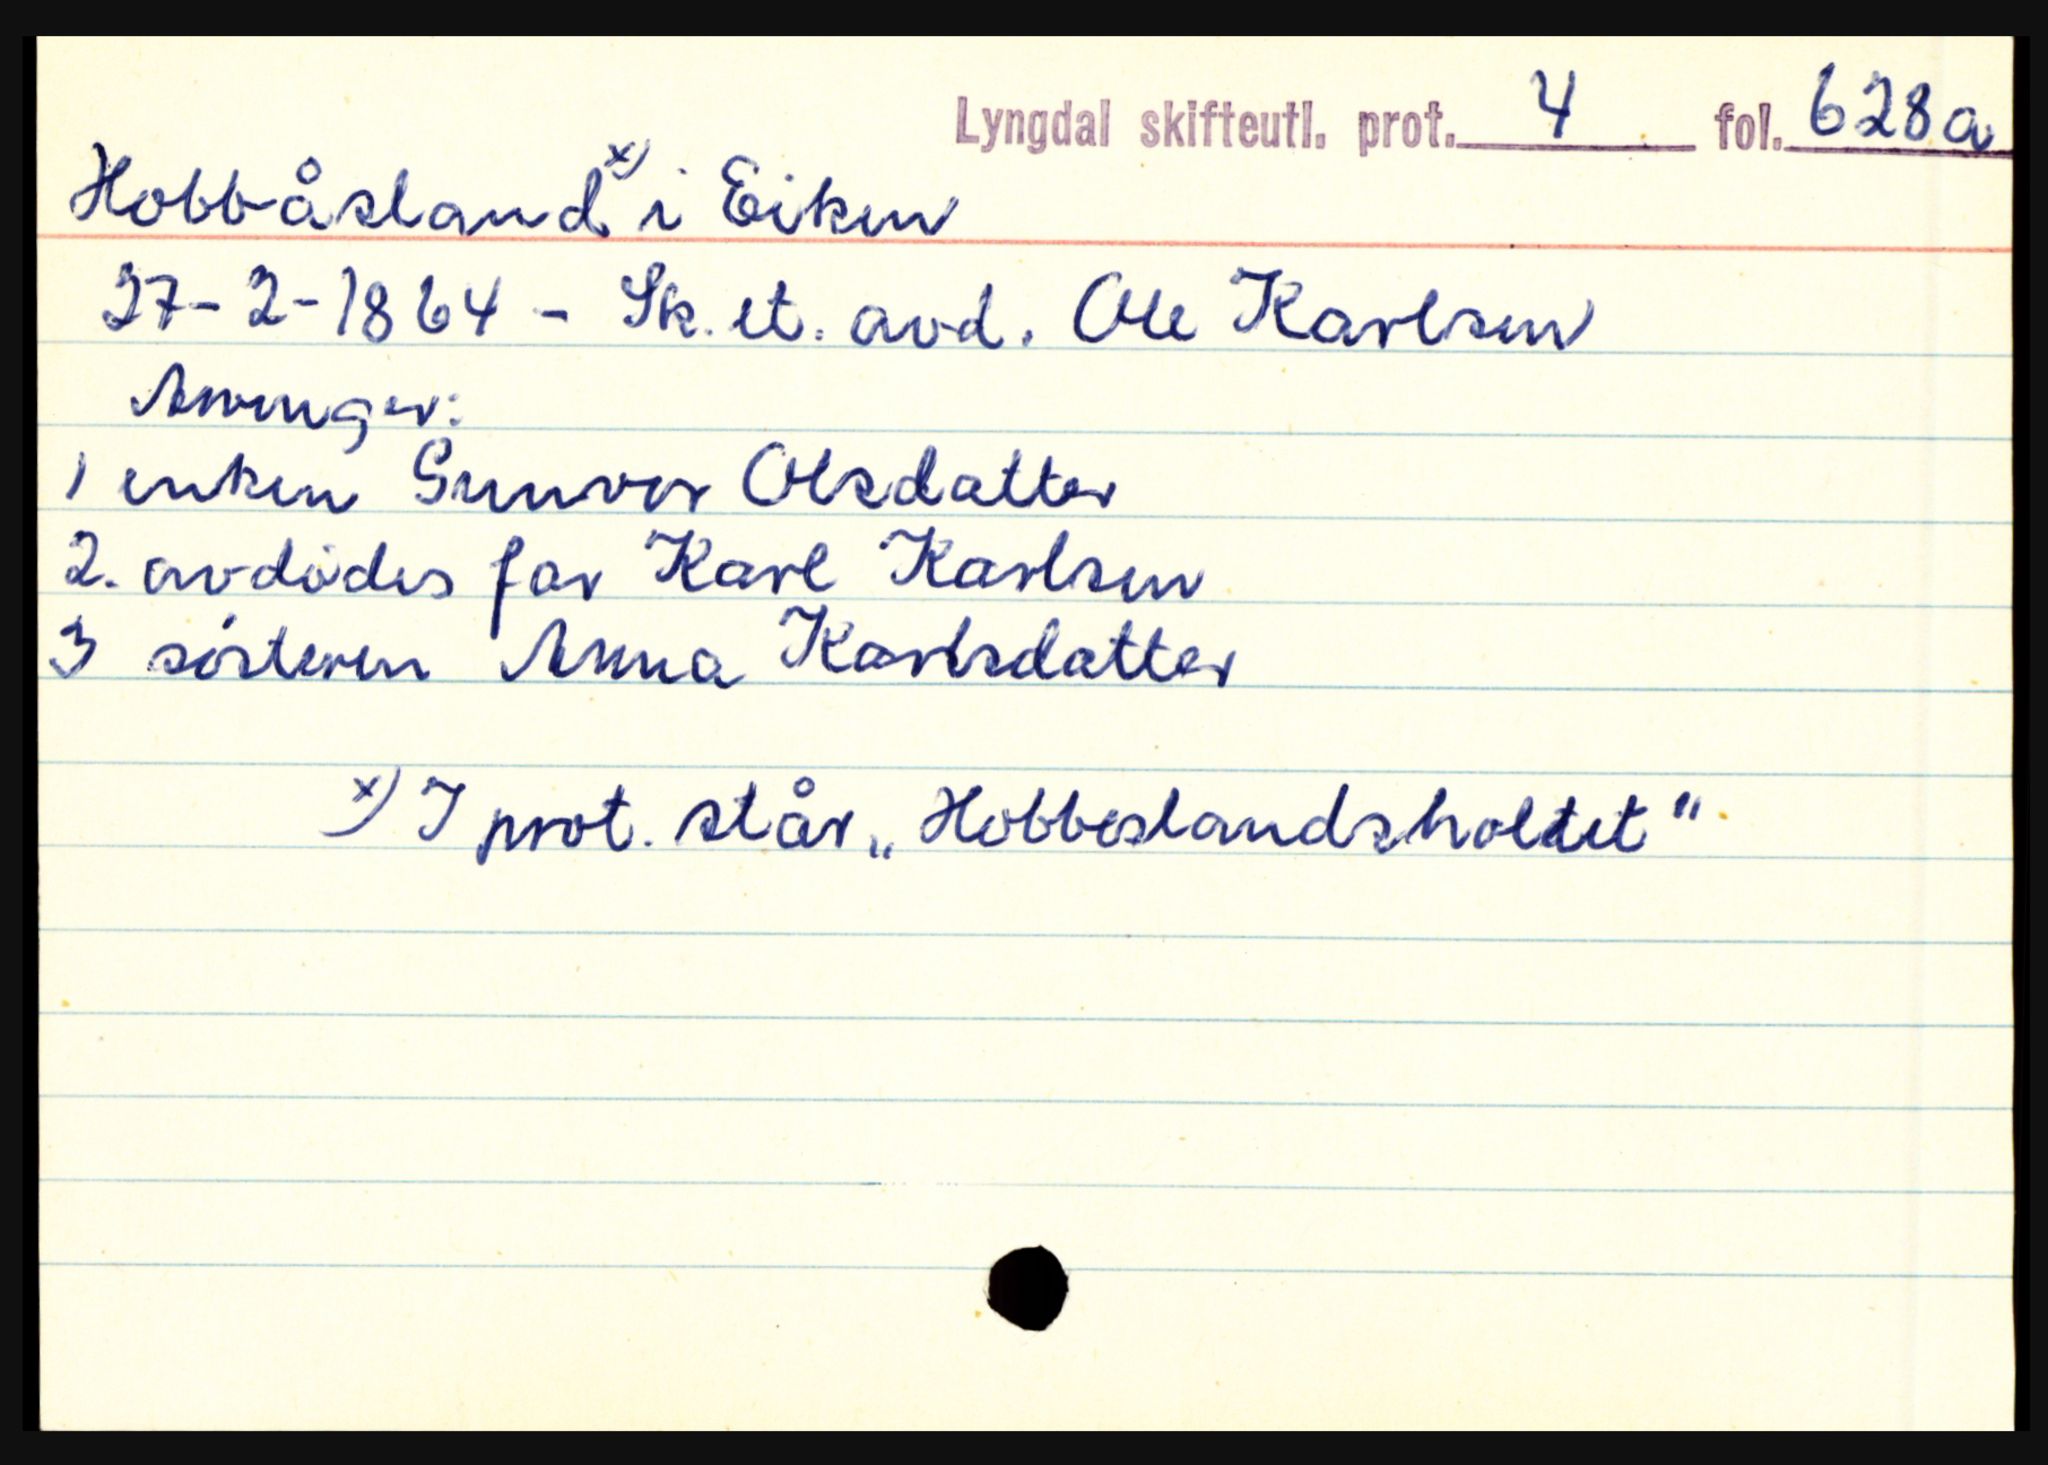 Lyngdal skifteutl. prot. 4 fol. 628a
Hobbåsland x) i Eiken
27-2-1864 - Sk. et. avd. Ole Karlsen
Arvinger:
1 enken Gunvor Olsdatter
2. avdødes far Karl Karlsen
3 søsteren Anna Karlsdatter
x) I prot. står „Hobbeslandsholtet"